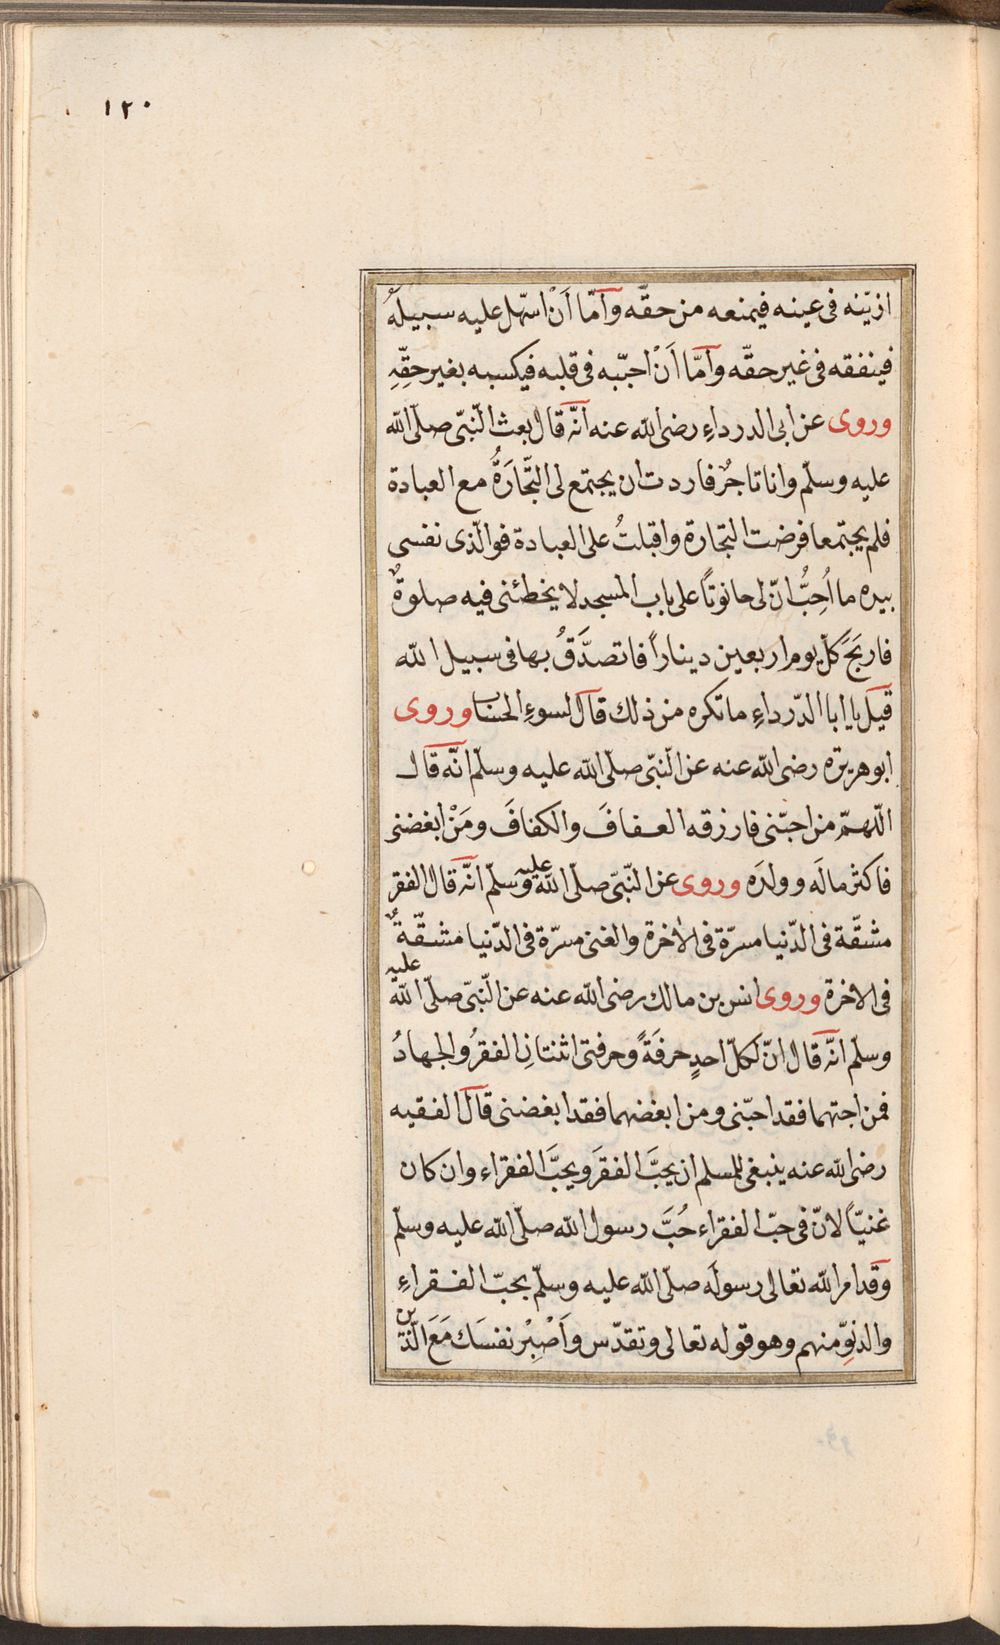 ١٢٠
ازيّنه فى عينه فيمنعه من حقّه وامّا اَنْ اسهّل عليه سبيلَهُ
فينفقه فى غير حقّه وامّا اَنْ احبّبه فى قلبه فيكسبه بغير حقِّهِ
وروى عن ابى الدرداءِ رضى الله عنه انّه قال بعث النّبىّ صلّى الله
عليه وسلّم وانا تاجرٌ فاردت ان يجتمع لى التّجَارَةُ مع العبادة
فلم يجتمعا فرضت التجارة واقبلتُ على العبادة فوالّذى نفسى
بيده ما اُحِبُّ انّ لى حانوتاً على باب المسجد لا يخطئنى فيه صلوةٌ
فاربَحَ كلّ يوم اربعين ديناراً فاتصدَّقُ بها فى سبيل الله
قيل يا ابا الدّرداءِ ما تكره من ذلك قال لسوءِ الحساب وروى
ابو هريرة رضى الله عنه عن النّبىّ صلّى الله عليه وسلّم انّه قال
اللّهمّ من احبّنى فارزقه العفافَ والكفافَ ومَنْ ابغضنى
فاكثر مالَه وولدَه وروى عن النّبىّ صلّى الله عليه وسلّم انّه قال الفقر
مشقّة فى الدّنيا مسرّة فى الاخرة والغنى مسرّة فى الدّنيا مشقّةٌ
فى الاخرة وروى انس بن مالك رضى الله عنه عن النّبىّ صلّى الله عليه
وسلّم انّه قال انّ لكلّ احدٍ حرفَةً وحرفتى اثنتانِ الفقرُ والجهادُ
فمن احبّهما فقد احبّنى ومن ابغضهما فقد ابغضنى قال الفقيه
رضى الله عنه ينبغى للمسلم ان يحبَّ الفقرَ ويحبَّ الفقراء وان كان
غنيّاً لانّ فى حبّ الفقراء حُبَّ رسول الله صلّى الله عليه وسلّم
وقد امر الله تعالى رسولَه صلّى الله عليه وسلّم بحبّ الفقراءِ
والدنوِّ منهم وهو قوله تعالى وتقدّس وَاَصْبِرْ نفسَك مَعَ الّذين